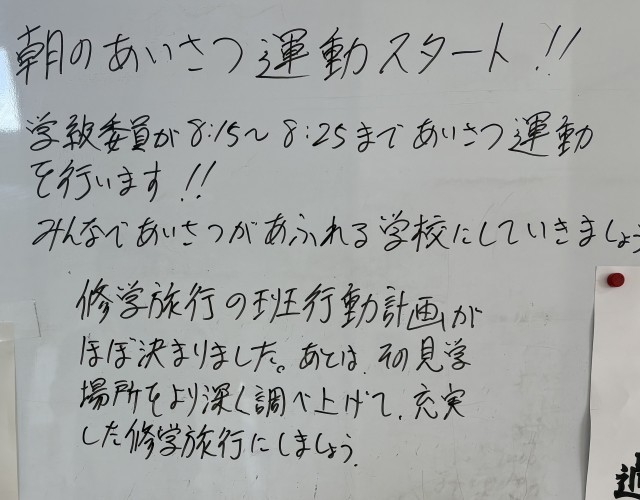 朝のあいさつ運動スタート!!
学級委員が8:15〜8:25まであいさつ運動
を行います!!
みんなであいさつがあふれる学校にしていきましょう
修学旅行の班行動計画が
ほぼ決まりました。あとは、その見学
場所をより深く調べ上げて、充実
した修学旅行にしましょう。